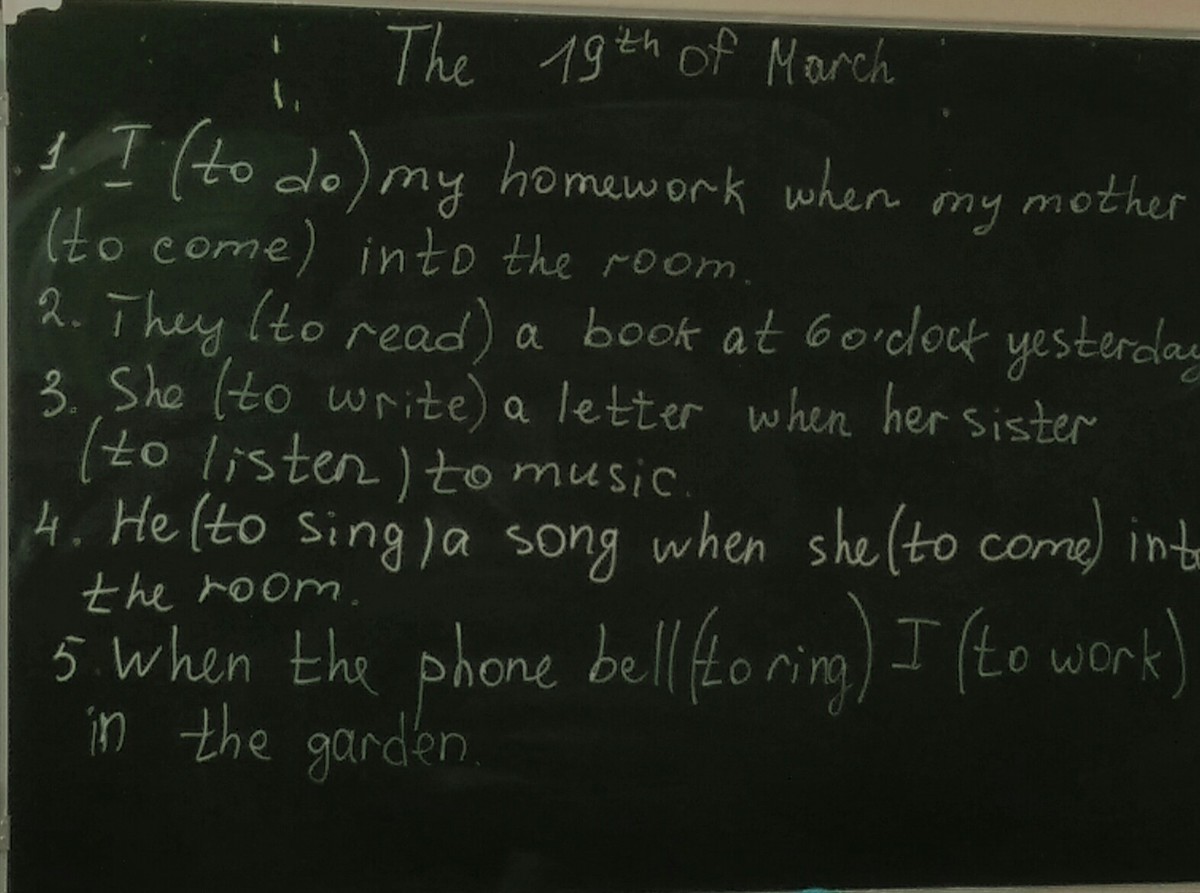 The 19th of March
1. I (to do) my homework when my mother
(to come) into the room.
2. They (to read) a book at 6 o'clock yesterday
3. She (to write) a letter when her sister
(to listen) to music.
4. He (to sing) a song when she (to come) into
the room.
5. When the phone bell (to ring) I (to work)
in the garden.